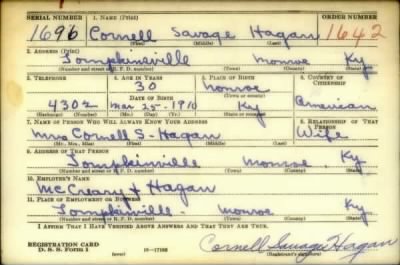 SERIAL NUMBER 1. NAME (Print) ORDER NUMBER
1696 Cornell Savage Hagan 1642
(First) (Middle) (Last)
2. ADDRESS (Print)
Tompkinsville Monroe Ky
(Number and street or R. F. D. number) (Town) (County) (State)
3. TELEPHONE 4. AGE IN YEARS 5. PLACE OF BIRTH 6. COUNTRY OF CITIZENSHIP
30 Monroe
(Town or county)
DATE OF BIRTH
4302 Mar 25-1910 Ky American
(Exchange) (Number) (Mo.) (Day) (Yr.) (State or country)
7. NAME OF PERSON WHO WILL ALWAYS KNOW YOUR ADDRESS 8. RELATIONSHIP OF THAT PERSON
Mrs Cornell S- Hagan Wife
(Mr., Mrs., Miss) (First) (Middle) (Last)
9. ADDRESS OF THAT PERSON
Tompkinville Monroe Ky
(Number and street or R. F. D. number) (Town) (County) (State)
10. EMPLOYER'S NAME
McCreary & Hagan
11. PLACE OF EMPLOYMENT OR BUSINESS
Tompkinville- Monroe Ky
(Number and street or R. F. D. number) (Town) (County) (State)
I AFFIRM THAT I HAVE VERIFIED ABOVE ANSWERS AND THAT THEY ARE TRUE.
REGISTRATION CARD
D. S. S. Form 1 (over) Cornell Savage Hagan
(Registrant's signature)